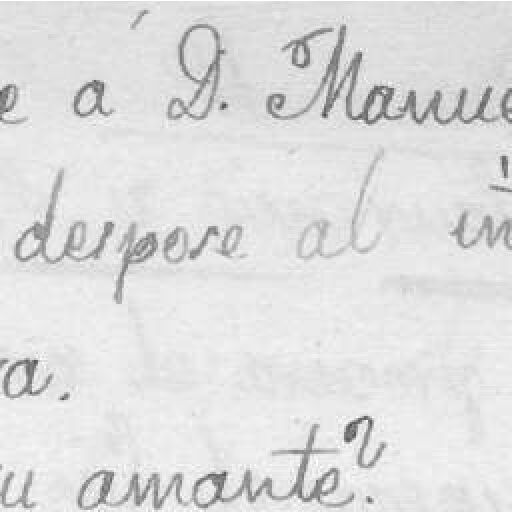 e á D. Manue
despose al in
a.
su amante?